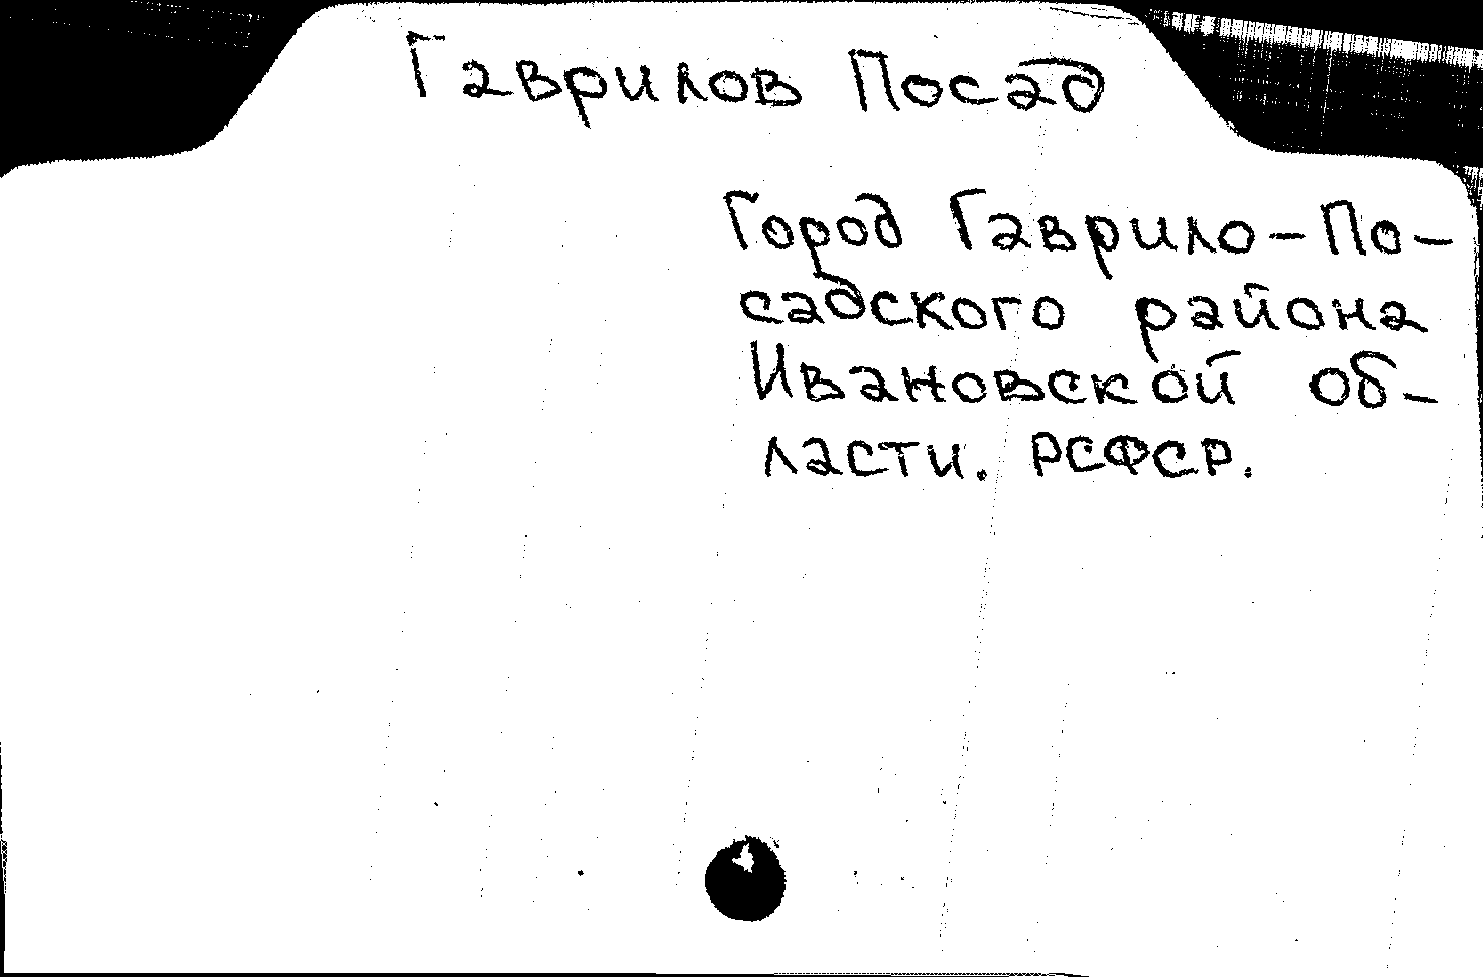 Гаврилов Посад
Город Гаврило-По-
садского района
Ивановской об-
ласти. РСФСР.